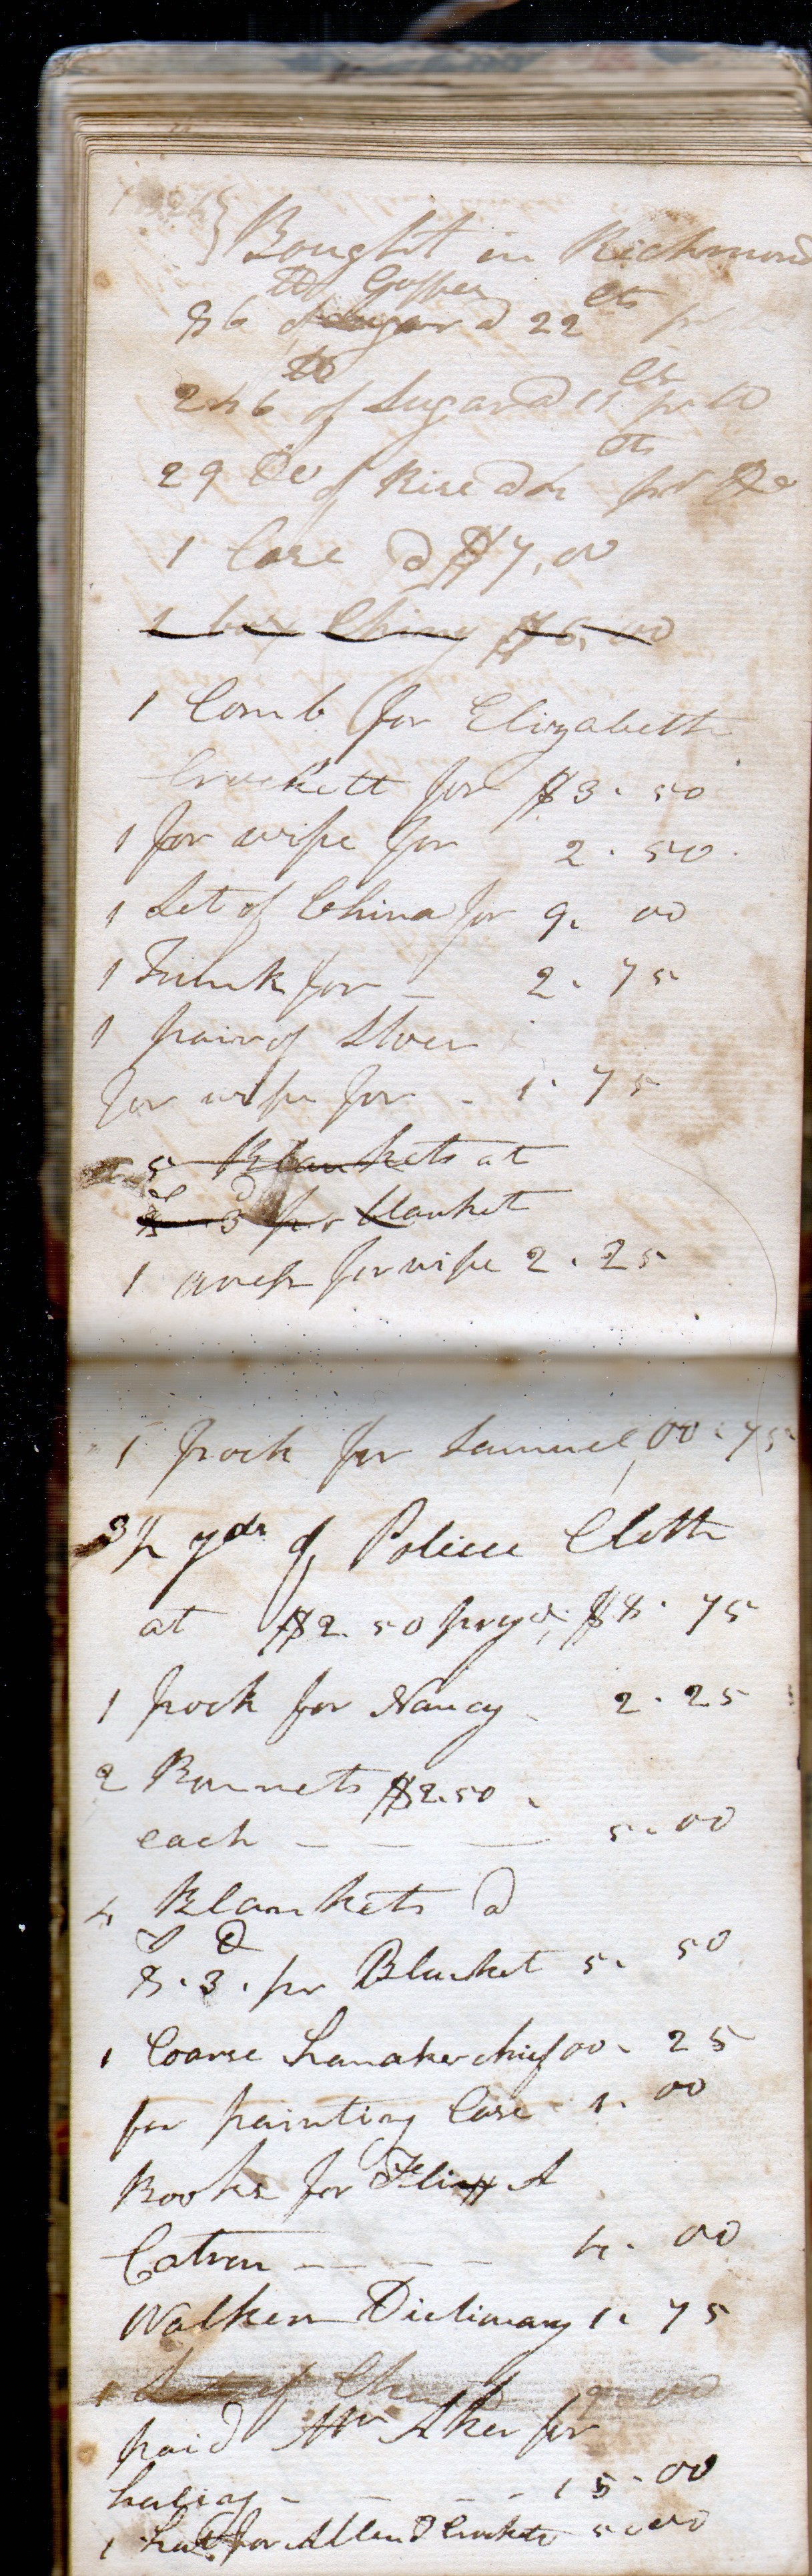 Bought in Richmond
lb Coffee cts
86 of Sugar @ 22 pr
lb cts
246 of Sugar @ 11 pr lb
cts
29 Do of Rise @ 4 pr Do
1 Case @ $7,00
1 box Chiny $6,00
1 Comb for Elizabeth
Crockett for $3.50
1 for wife for 2.50
1 Set of China for 9.00
1 Trunk for - 2.75
1 pair of Shoes
for wife for - 1.75
5 Blankets at
8 3 pr blanket
1 for wife 2.25
1 frock for Samuel 00.75
3½ yds of Cloth
at $2.50 pr yd, $8.75
1 frock for Nancy - 2.25
2 Bonnets $2.50
each - - - 5.00
4 Blankets @
S D
8.3. pr Blanket 5.50
1 Coarse hanakerchief 00.25
for painting Case 1.00
Books for A
Catron - - - - 4.00
Walkers Dictionary 1.75
1 Set of China 9.00
paid Mr Aker for
haling - - - - 15.00
1 hat for Allen Crockett 5.00